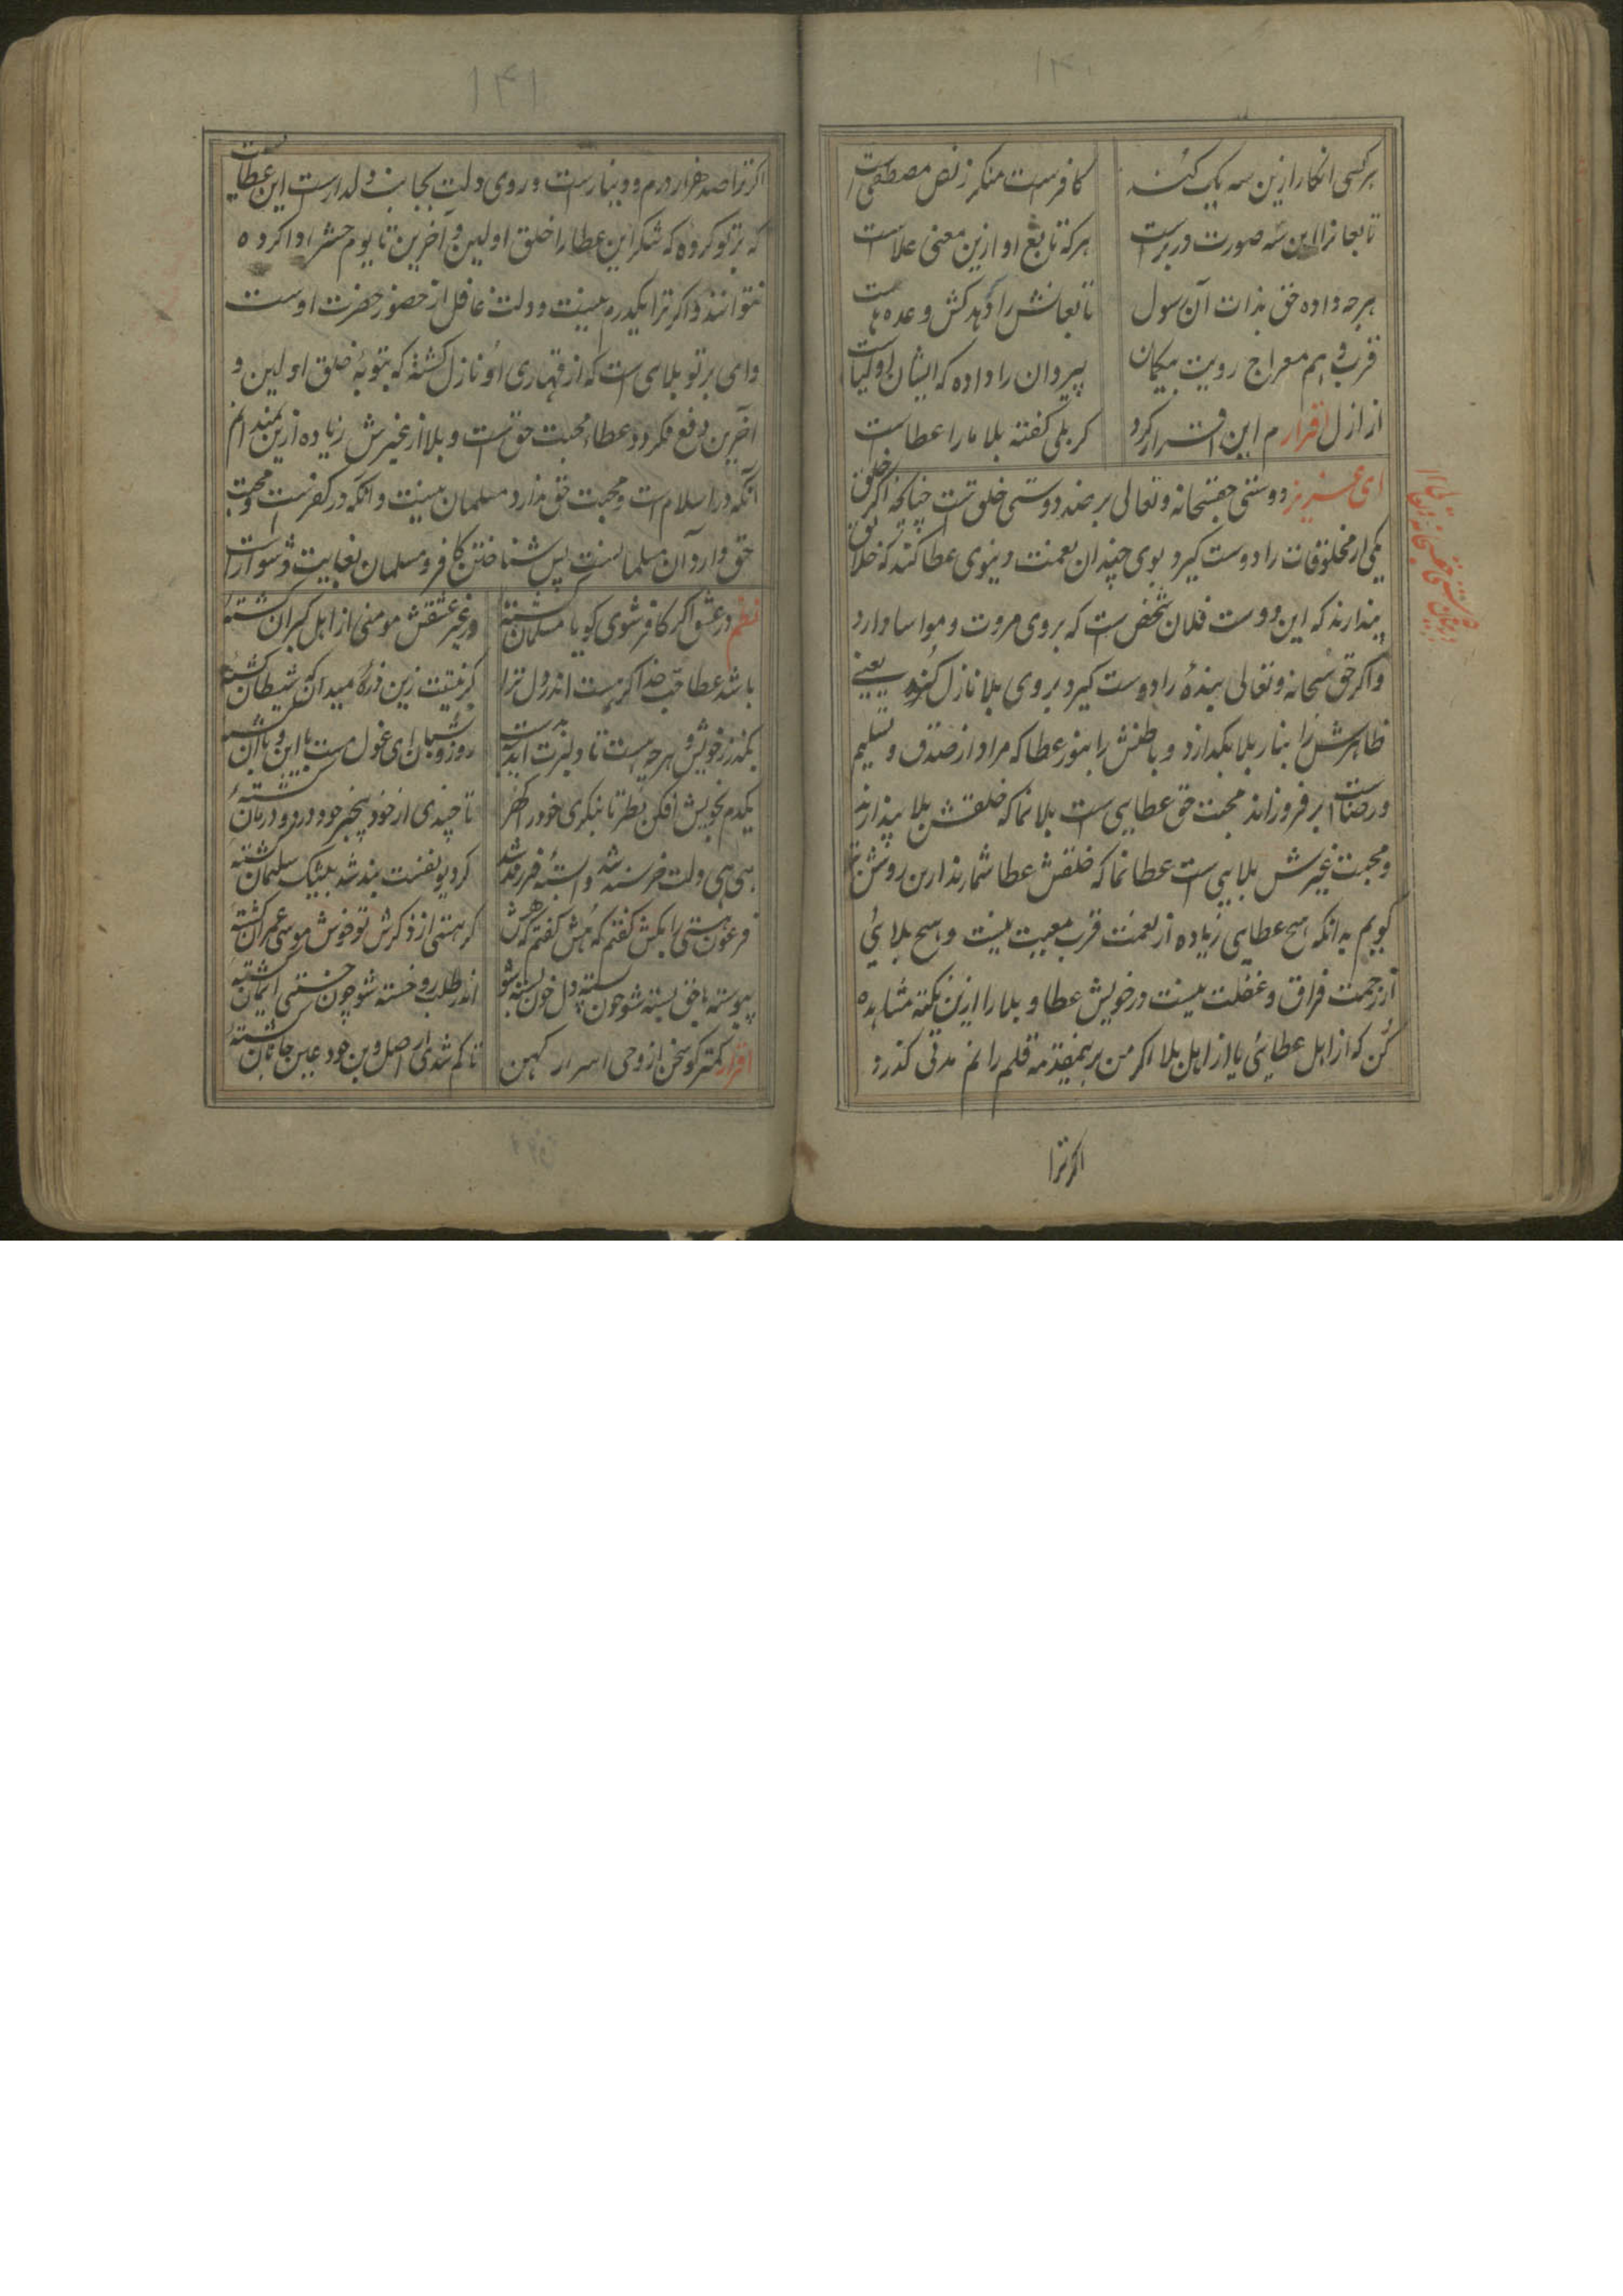 ۱۴۰
هر کسی انکار ازین سه یک کند
کافرست منکر ز نص مصطفی است
تابعانرا این سه صورت در برست
هر که تابع او ازین معنی علاست
هر چه داده حق بذات آن رسول
تابعانش را وعده هاست
قرب و هم معراج رویت بیکمان
پیروان را داده که ایشان اولیاست
از ازل اقرارم این اقرار کرد
کر بلی کفته بلا ما را عطاست
ای عزیز دوستی حقسبحانه وتعالی بر ضد دوستی خلق است چنانچه اکر خلق
یکی از مخلوقات را دوست کیرد بوی چندان نعمت دنیوی عطا کند که خلایق
پندارند که این دوست فلان شخص است که بروی مروت و مواسا دارد
واکر حق سبحانه وتعالی بندهٔ را دوست کیرد بروی بلا نازل کند یعنی
ظاهرش را بنار بلا بکدازد و باطنش را بنور عطا که مراد از صدق و تسلیم
و رضاست بر فروزاند محبت حق عطایی است بلا نما که خلقش بلا پندارند
و محبت غیرش بلایی است عطا نما که خلقش عطا شمارند ازین روشن تر
کویم بدانکه هیچ عطایی زیاده از نعمت قرب معیت نیست و هیچ بلائی
از زحمت فراق و غفلت نیست در خویش عطا و بلا را ازین نکته مشاهده
کن که از اهل عطایی یا از اهل بلا اکر من برینمقدمه قلم رانم مدتی کذرد
اکر ترا
۱۴۱
اکر ترا صد هزار درم و دینار است و روی دلت بجانب دلدار است این عطاییست
که بر تو کرده که شکر این عطا را خلق اولین و آخرین تا یوم حشر ادا کرده
نتوانند و اکر ترا یکدرم نیست و دلت غافل از حضور حضرت اوست
وای بر تو بلای است که از قهاری او نازل کشته که بتوبهٔ خلق اولین و
آخرین دفع نکردد عطاء محبت حق است و بلا از غیرش زیاده ازین
آنکه در اسلام است و محبت حق ندارد مسلمان نیست و آنکه در کفرست و محبت
حق دارد آن مسلمانست پس شناختن کافر و مسلمان بغایت دشوار است
نظم در عشق اکر کافر شوی کویا مسلمان کشتهٔ
ور غیر عشقش مومنی از اهل کبران کشتهٔ
باشد عطا حب خدا کر هست اندر دل ترا
کر نیستت زین ذرهٔ میدان که شیطان کشتهٔ
بکذر ز خویش و هر چه هست تا دلبرت آید بدست
روز و شبان ای غول مست با این و با آن کشتهٔ
یکدم بخویش افکن نظر تا بنکری خود را
تا چندی از خود بیخبر درد و درمان کشتهٔ
هی هی دلت خرسند شد
کر دیو نفست بند شد بیشک سلیمان کشتهٔ
فرعون هستی را بکش کفتم که هش کفتم که هش
کر هستی از ذکرش تو خوش موسی عمران کشتهٔ
پیوسته با حق بسته شو چون پسته دل خون بسته شو
اندر طلب رو خسته شو چون
اقرار کمتر کو سخن از وحی اسرار کهن
تا کم شدی از اصل و بن خود عین جانان کشتهٔ